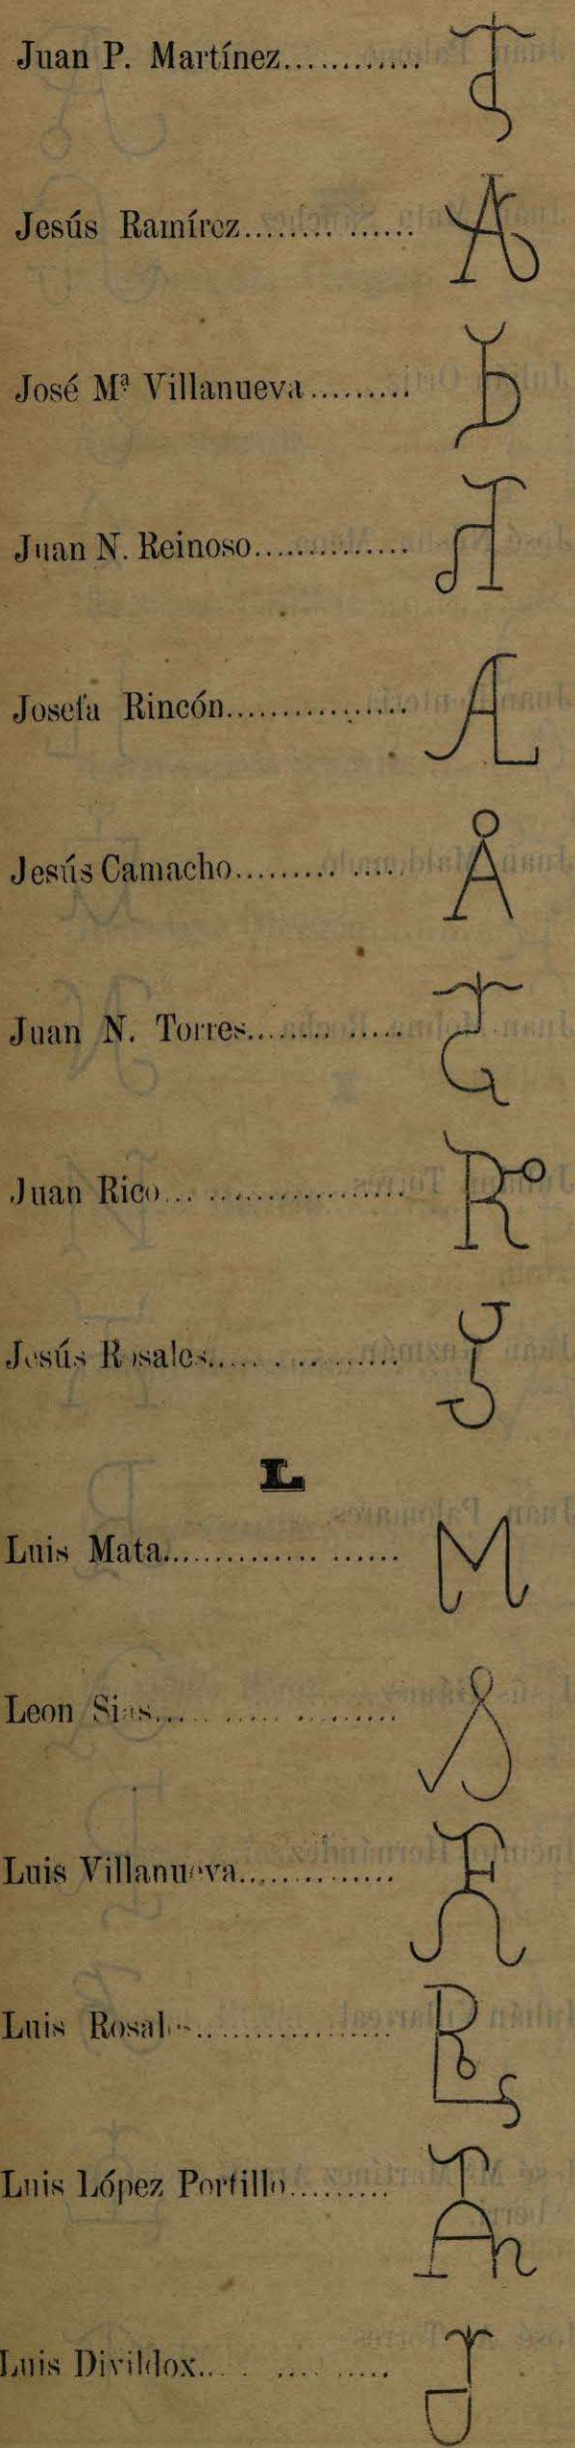 Juan P. Martínez............
Jesús Ramírez........ ......
José Mª Villanueva.........
Juan N. Reinoso..............
Josefa Rincón................
Jesús Camacho......... .....
Juan N. Torres........ .....
Juan Rico... .................
Jesús Rosales..... . .. ......
L
Luis Mata.............. ......
Leon Sias.... . .... ........
Luis Villanueva..............
Luis Rosales.................
Luis López Portillo.........
Luis Divildox... . .... .....